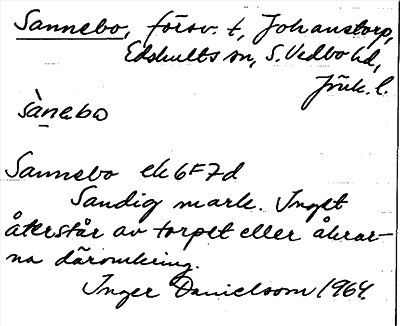 Sannebo, försv. t, Johanstorp,
Edshults sn, S. Vedbo hd,
Jönk. l.
sànebo
Sannebo ek 6F7d
Sandig mark. Inget
återstår av torpet eller åkrar-
na däromkring.
Inger Danielsson 1964.